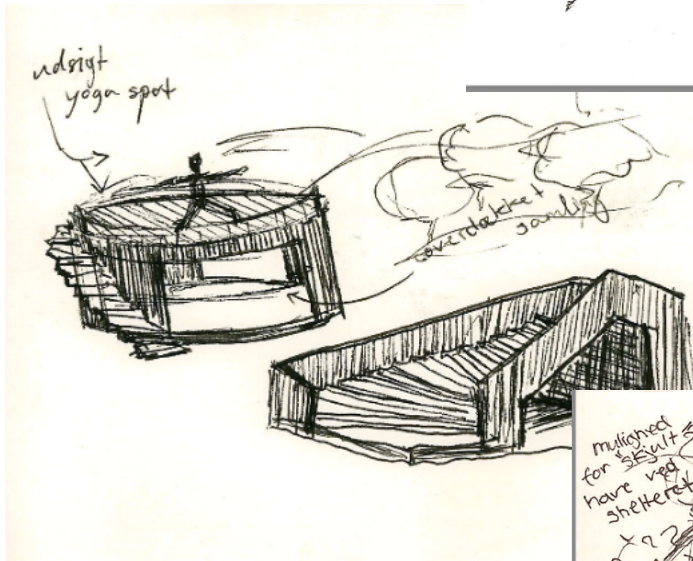 udsigt
yoga spot
overdækket
samling
mulighed
for "skjult
have ved
shelteret